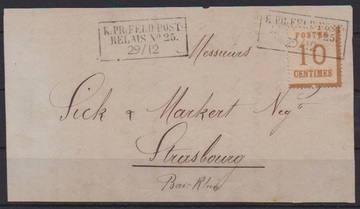 K. PR. FELD-POST-
RELAIS No 25.
29/12
K. PR. FELD-POST-
25.
29/12
POSTES
10
CENTIMES
Messieurs
Sick & Markert Negts
Strasbourg
Bas-Rhin